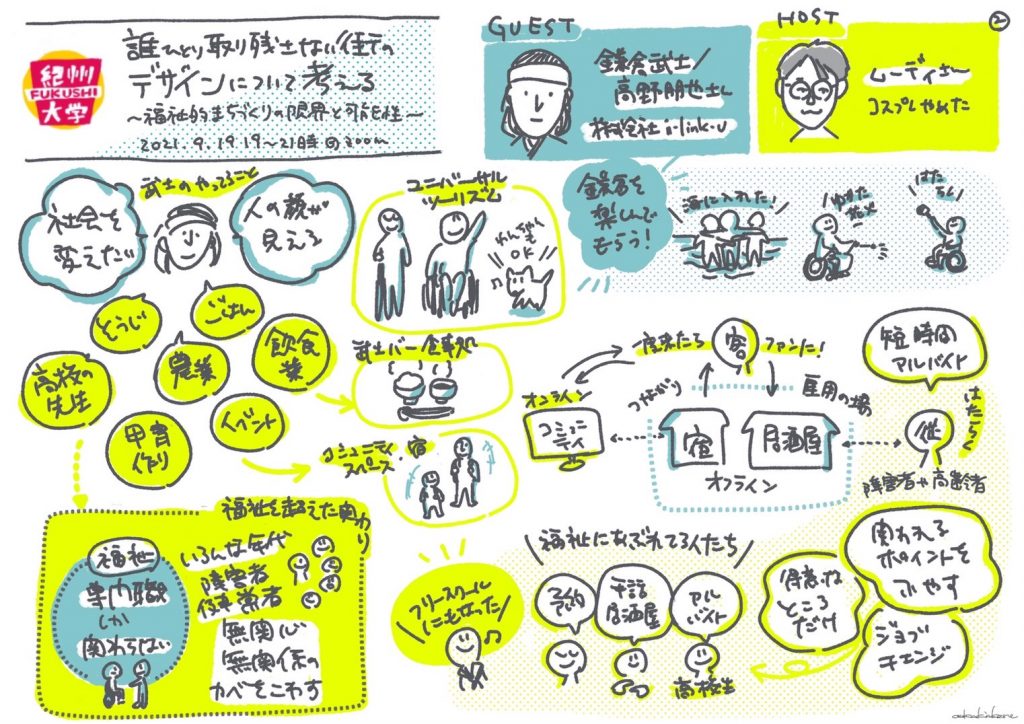 紀州
FUKUSHI
大学
誰ひとり取り残さない街の
デザインについて考える
〜福祉的まちづくりの限界と可能性〜
2021.9.19 19〜21時@zoom
GUEST
鎌倉武士/
高野朋也さん
株式会社i-link-u
HOST
ムーディさん
コスプレやめた
2
武士のやってること
社会を
変えたい
人の顔が
見える
そうじ
ごはん
高校の
先生
農業
飲食
業
甲冑
作り
イベント
ユニバーサル
ツーリズム
わんちゃんも
OK
鎌倉を
楽しんで
もらう!
海に入れた!
はた
武士バー 食事処
コミュニティ
スペース・宿
オンライン
コミュニ
ティ
客
ファンに!
つながり
雇用の場
宿
居酒屋
オフライン
短時間
アルバイト
はたらく
障害者や高齢者
福祉を超えた関わり
福祉
専門職
しか
関わらない
いろんな年代
障害者
健常者
無関心
無関係の
カベをこわす
フリースクール
にもなった!
福祉にあぶれてる人たち
予約
手話
居酒屋
アル
バイト
高校生
得意な
ところ
だけ
関われる
ポイントを
ふやす
ジョブ
チェンジ